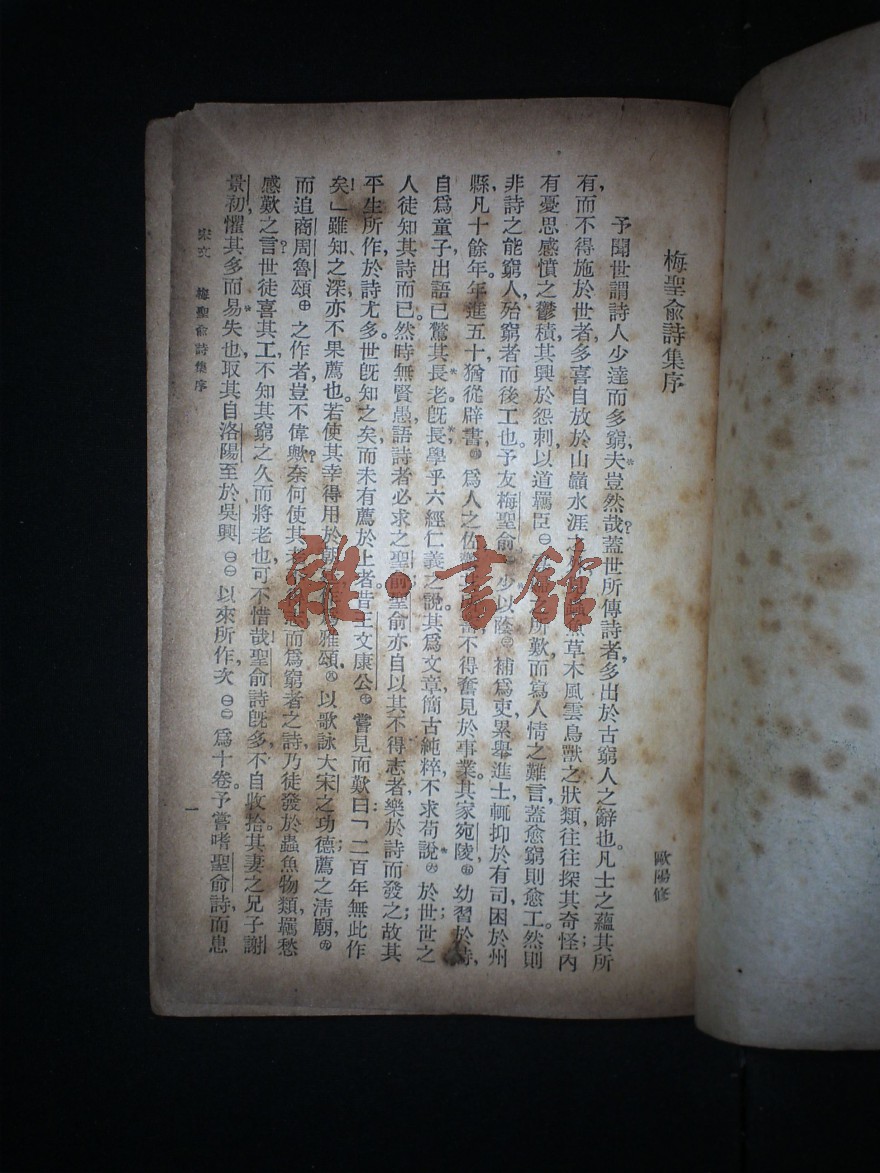 梅聖俞詩集序
歐陽修
予聞世謂詩人少達而多窮,夫豈然哉?蓋世所傳詩者,多出於古窮人之辭也。凡士之蘊其所
有,而不得施於世者,多喜自放於山巓水涯之 魚草木風雲鳥獸之狀類,往往探其奇怪;內
有憂思感憤之鬱積,其興於怨刺,以道羈臣㊀ 所歎,而寫人情之難言,蓋愈窮則愈工。然則
非詩之能窮人,殆窮者而後工也。予友梅聖俞㊁,少以蔭㊂補爲吏,累舉進士,輒抑於有司,困於州
縣,凡十餘年。年進五十,猶從辟書㊃,爲人之佐, 不得奮見於事業。其家宛陵㊄,幼習於詩,
自爲童子,出語已驚其長老。旣長,學乎六經仁義之說,其爲文章,簡古純粹,不求苟說㊅於世,世之
人徒知其詩而已。然時無賢愚,語詩者必求之聖俞;聖俞亦自以其不得志者,樂於詩而發之;故其
平生所作,於詩尤多。世旣知之矣,而未有薦於上者。昔王文康公㊆嘗見而歎曰:「二百年無此作
矣!」雖知之深,亦不果薦也。若使其幸得用於朝 雅頌㊇,以歌詠大宋之功德,薦之淸廟,㊈
而追商周魯頌㊉之作者,豈不偉歟?奈何使其 而爲窮者之詩,乃徒發於蟲魚物類羈愁
感歎之言?世徒喜其工,不知其窮之久而將老也,可不惜哉!聖俞詩旣多,不自收拾。其妻之兄子謝
景初,懼其多而易失也,取其自洛陽至於吳興㊀㊀以來所作,次㊀㊁爲十卷。予嘗嗜聖俞詩,而患
宋文 梅聖俞詩集序
一
雜·書館